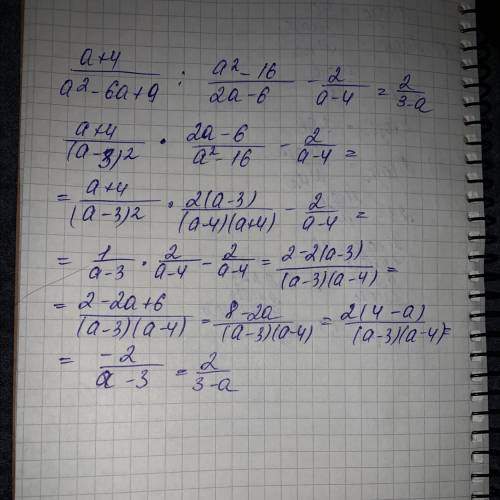 (a+4)/(a²-6a+9) : (a²-16)/(2a-6) - 2/(a-4) = 2/(3-a)
(a+4)/(a-3)² · (2a-6)/(a²-16) - 2/(a-4) =
= (a+4)/(a-3)² · 2(a-3)/(a-4)(a+4) - 2/(a-4) =
= 1/(a-3) · 2/(a-4) - 2/(a-4) = (2-2(a-3))/(a-3)(a-4) =
= (2-2a+6)/(a-3)(a-4) = (8-2a)/(a-3)(a-4) = 2(4-a)/(a-3)(a-4) =
= -2/(a-3) = 2/(3-a)